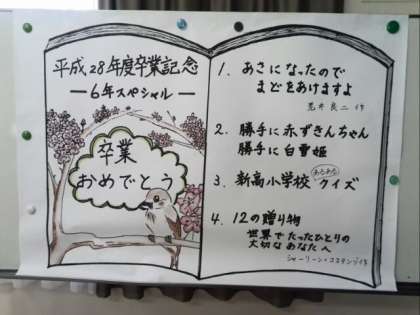 平成28年度卒業記念
―6年スペシャル―
卒業
おめでとう
1. あさになったので
まどをあけますよ
荒井良二 作
2. 勝手に赤ずきんちゃん
勝手に白雪姫
3. 新高小学校 あるある クイズ
4. 12の贈り物
世界でたったひとりの
大切なあなたへ
シャーリーン・コスタンゾ作